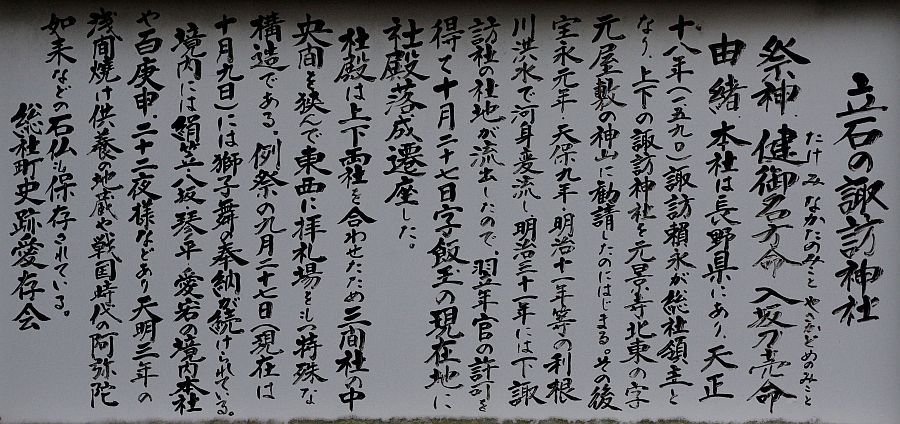 立石の諏訪神社
たけみなかたのみこと やさかどめのみこと
祭神 健御名方命 八坂刀売命
由緒 本社は長野県にあり、天正
十八年(一五九〇)諏訪頼永が総社領主と
なり、上下の諏訪神社を元景寺北東の字
元屋敷の神山に勧請したのにはじまる。その後
宝永元年・天保九年・明治十一年等の利根
川洪水で河身変流し、明治三十一年には下諏
訪社の社地が流出したので、翌年官の許可を
得て十月二十七日字飯玉の現在地に
社殿落成遷座した。
社殿は上下両社を合わせたため三間社の中
央間を狭んで東西に拝札場をもつ特殊な
構造である。例祭の九月二十七日(現在は
十月九日)には獅子舞の奉納が続けられている。
境内には絹笠・八坂・琴平・愛宕の境内本社
や百庚申、二十二夜様などあり天明三年の
浅間焼け供養の地蔵や戦国時代の阿弥陀
如来などの石仏も保存されている。
総社町史跡愛存会